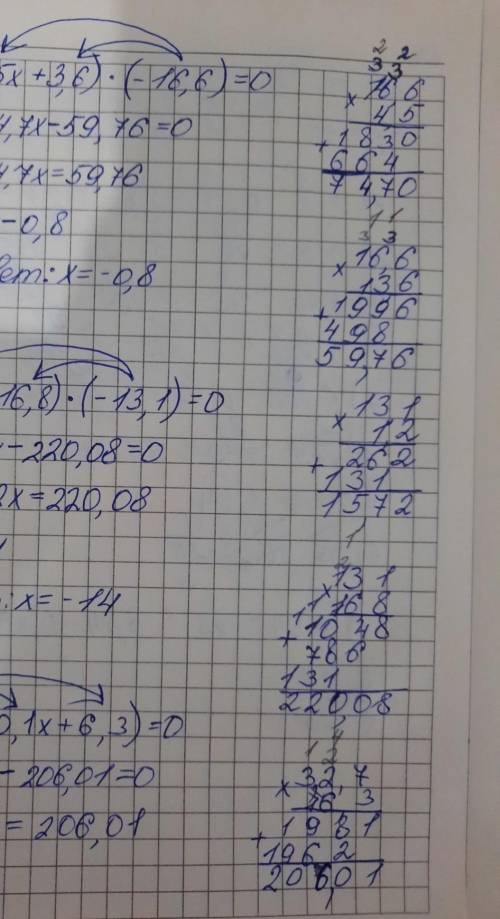 5x+3,6)·(-16,6)=0
4,7x-59,76=0
4,7x=59,76
-0,8
вет: x=-0,8
16,8)·(-13,1)=0
-220,08=0
2x=220,08
: x=-14
0,1x+6,3)=0
-206,01=0
= 206,01
2 2
3 3
16,6
× 4,5
+ 1830
664
74,70
1 1
3 3
16,6
× 136
+ 1996
498
59,76
131
× 12
+ 262
131
1572
1
2
131
× 168
1 1
+ 1048
786
131
22008
1 2
32,7
× 6 3
+ 1981
1962
206,01
1